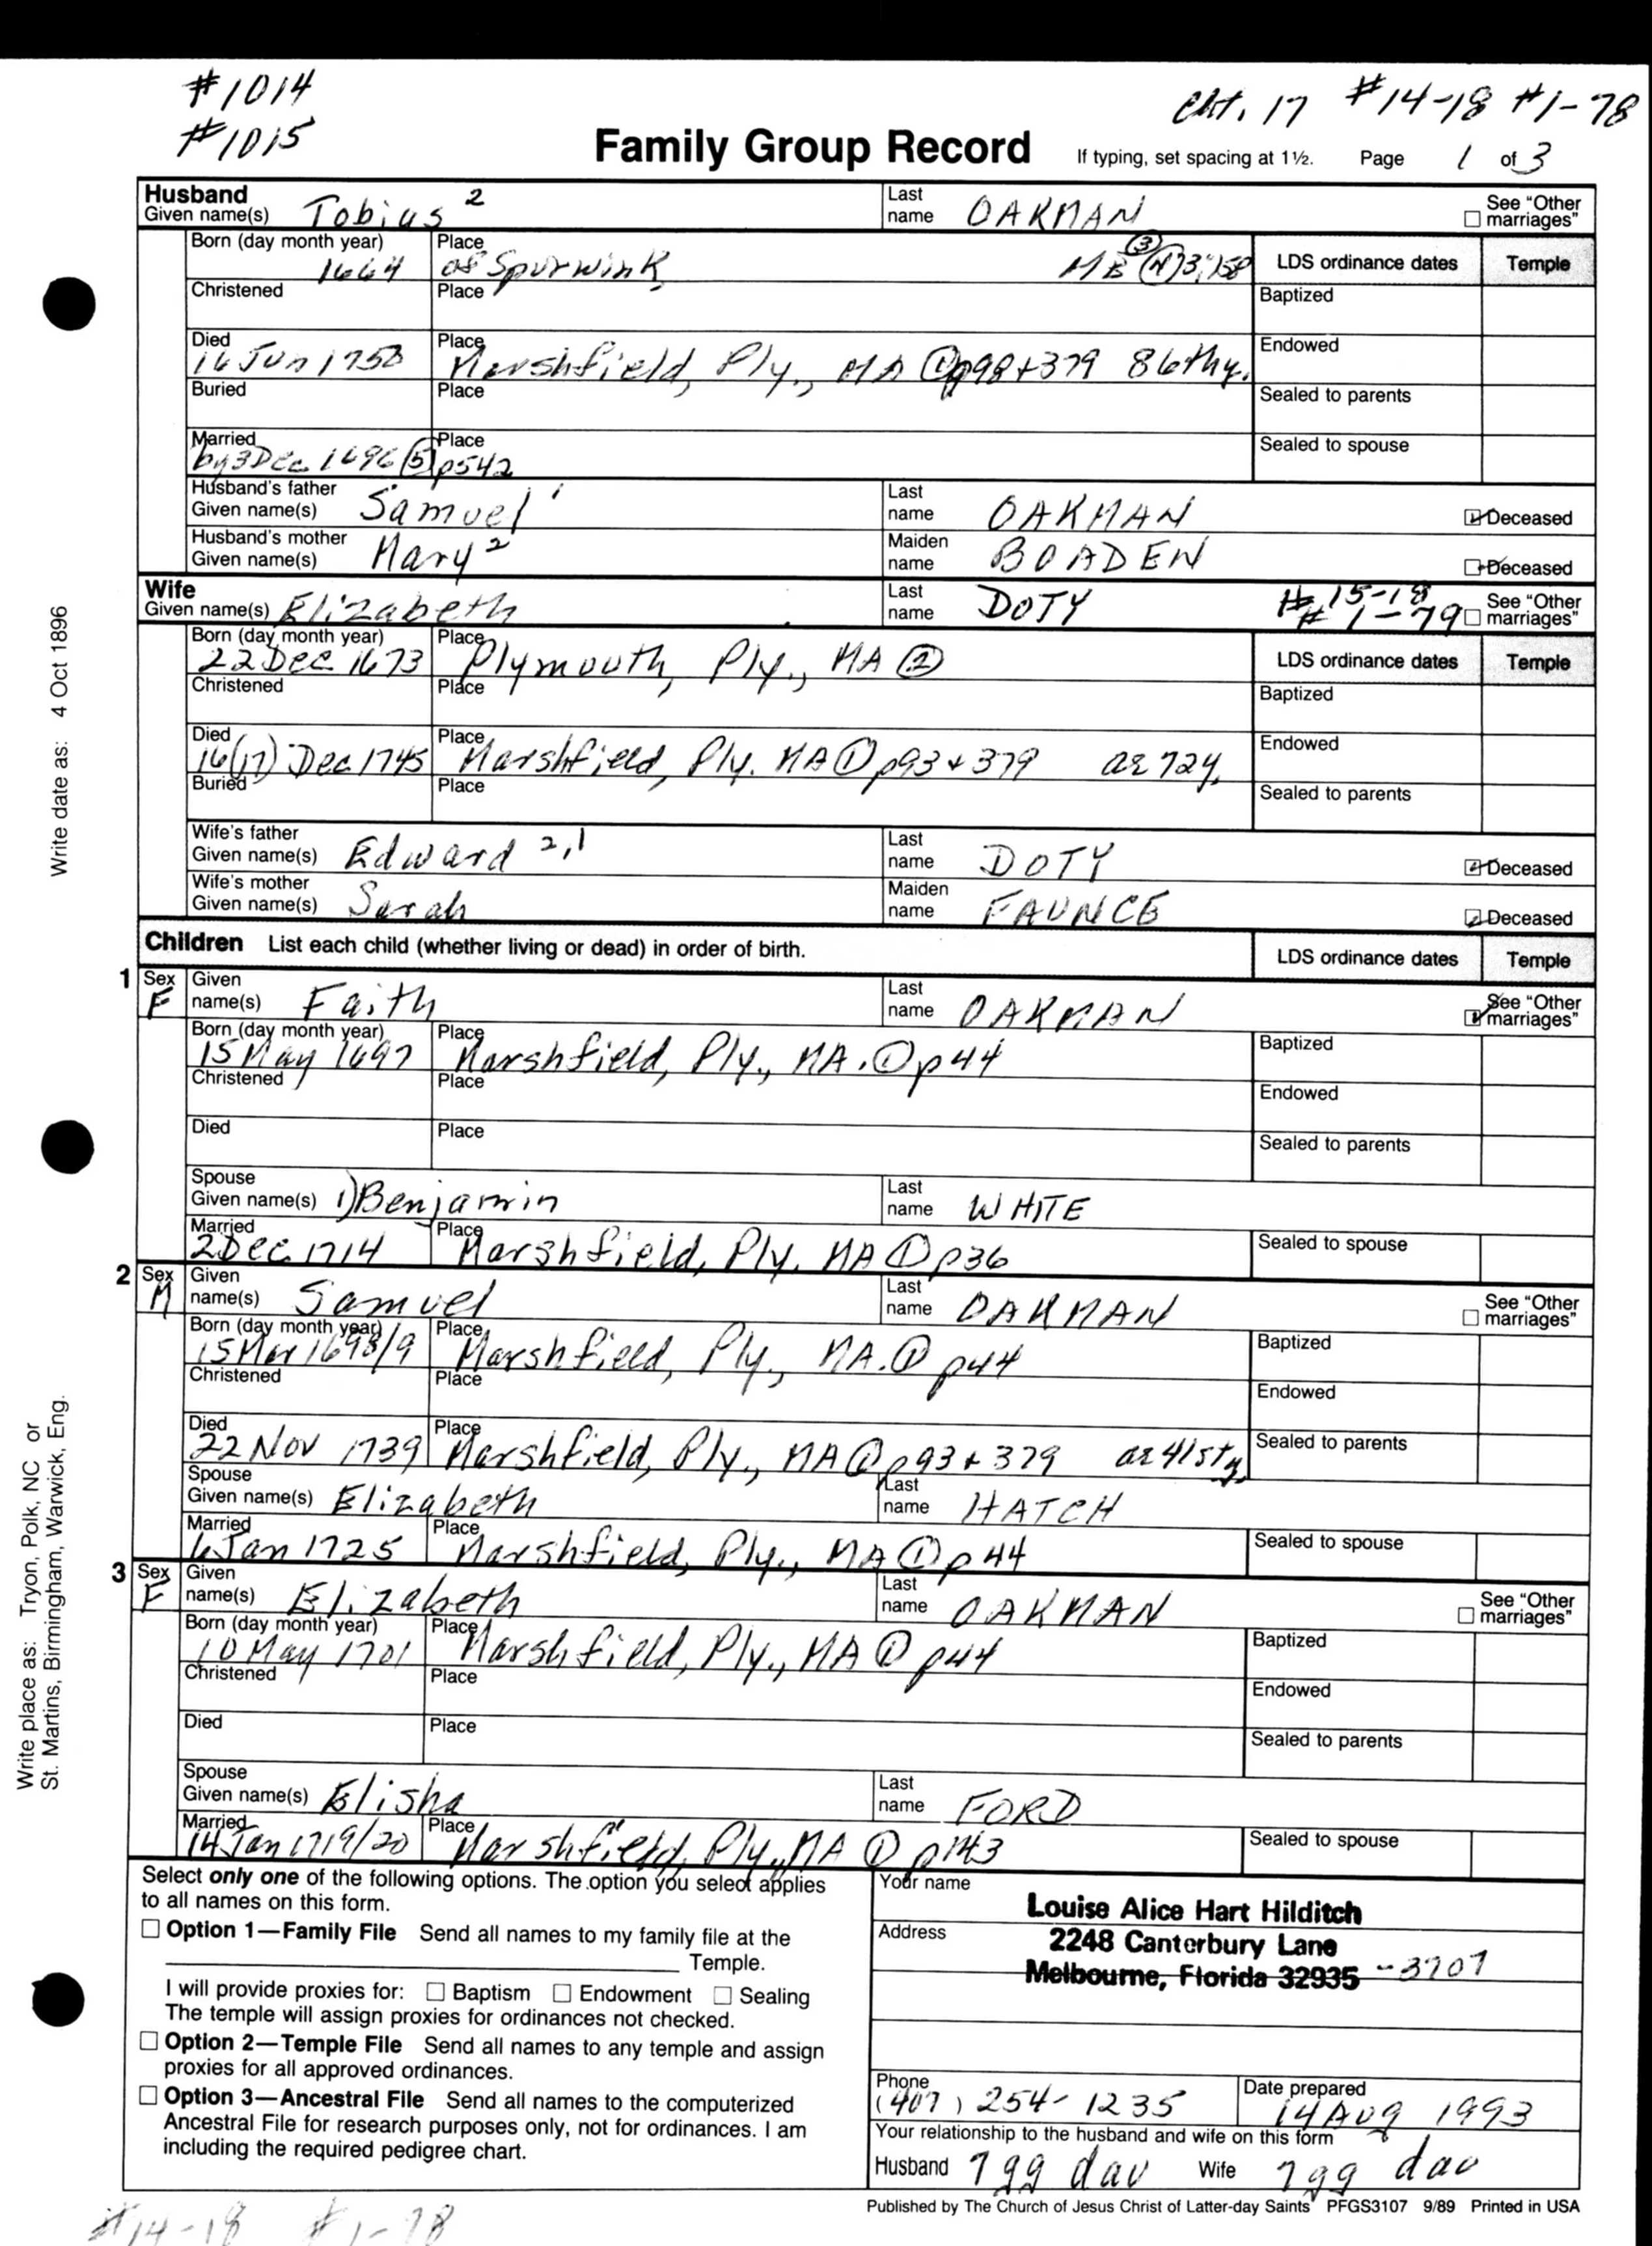 #1014
#1015
Cht. 17 #14-18 #1-78
Family Group Record If typing, set spacing at 1½. Page 1 of 3
Husband
Given name(s) Tobias 2 Last name OAKMAN See "Other marriages"
Born (day month year) 1664 Place of Spurwink ME LDS ordinance dates Temple
Christened Place Baptized
Died 16 Jun 1750 Place Marshfield, Ply., MA ① p98+379 86thy. Endowed
Buried Place Sealed to parents
Married by 3 Dec 1696 ⑤ p542 Place Sealed to spouse
Husband's father Given name(s) Samuel 1 Last name OAKMAN Deceased
Husband's mother Given name(s) Mary 2 Maiden name BOADEN Deceased
Wife
Given name(s) Elizabeth Last name DOTY #15-18 #1-79 See "Other marriages"
Born (day month year) 22 Dec 1673 Place Plymouth, Ply., MA ② LDS ordinance dates Temple
Christened Place Baptized
Died 16(17) Dec 1745 Place Marshfield, Ply. MA ① p93+379 ae 72y. Endowed
Buried Place Sealed to parents
Wife's father Given name(s) Edward 2,1 Last name DOTY Deceased
Wife's mother Given name(s) Sarah Maiden name FAUNCE Deceased
Children List each child (whether living or dead) in order of birth. LDS ordinance dates Temple
1 Sex F Given name(s) Faith Last name OAKMAN See "Other marriages"
Born (day month year) 15 May 1697 Place Marshfield, Ply., MA. ① p44 Baptized
Christened Place Endowed
Died Place Sealed to parents
Spouse Given name(s) 1) Benjamin Last name WHITE
Married 2 Dec 1714 Place Marshfield, Ply. MA ① p36 Sealed to spouse
2 Sex M Given name(s) Samuel Last name OAKMAN See "Other marriages"
Born (day month year) 15 Mar 1698/9 Place Marshfield, Ply., MA. ① p44 Baptized
Christened Place Endowed
Died 22 Nov 1739 Place Marshfield, Ply., MA ① p93+379 ae 41sty. Sealed to parents
Spouse Given name(s) Elizabeth Last name HATCH
Married 6 Jan 1725 Place Marshfield, Ply., MA ① p44 Sealed to spouse
3 Sex F Given name(s) Elizabeth Last name OAKMAN See "Other marriages"
Born (day month year) 10 May 1701 Place Marshfield, Ply., MA ① p44 Baptized
Christened Place Endowed
Died Place Sealed to parents
Spouse Given name(s) Elisha Last name FORD
Married 14 Jan 1719/20 Place Marshfield, Ply., MA ① p143 Sealed to spouse
Select only one of the following options. The option you select applies
to all names on this form.
Option 1—Family File Send all names to my family file at the
Temple.
I will provide proxies for: Baptism Endowment Sealing
The temple will assign proxies for ordinances not checked.
Option 2—Temple File Send all names to any temple and assign
proxies for all approved ordinances.
Option 3—Ancestral File Send all names to the computerized
Ancestral File for research purposes only, not for ordinances. I am
including the required pedigree chart.
Your name Louise Alice Hart Hilditch
Address 2248 Canterbury Lane
Melbourne, Florida 32935 -3707
Phone (407) 254-1235 Date prepared 14 Aug 1993
Your relationship to the husband and wife on this form
Husband 7 gg dau Wife 7gg dau
Published by The Church of Jesus Christ of Latter-day Saints PFGS3107 9/89 Printed in USA
#14-18 #1-78
Write date as: 4 Oct 1896
Write place as: Tryon, Polk, NC or
St. Martins, Birmingham, Warwick, Eng.